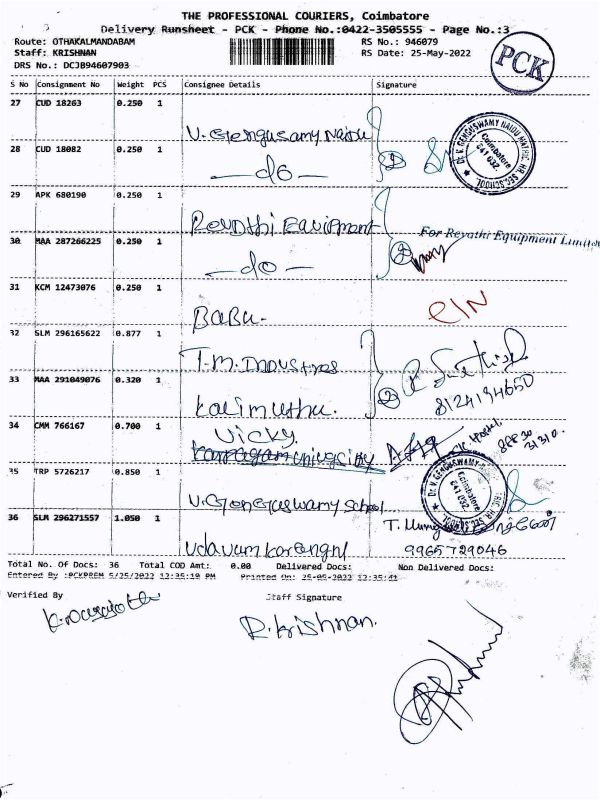 THE PROFESSIONAL COURIERS, Coimbatore
Delivery Runsheet - PCK - Phone No.:0422-3505555 - Page No.:3
Route: OTHAKALMANDABAM
RS No.: 946079
Staff: KRISHNAN
RS Date: 25-May-2022
DRS No.: DCJB94607903
PCK
S No Consignment No Weight PCS Consignee Details Signature
27 CUD 18263 0.250 1
V. Gengusamy Naidu
28 CUD 18082 0.250 1
-do-
Dr. V. GENGUSWAMY NAIDU MATRIC. HR. SEC. SCHOOL
Coimbatore
641 032.
29 APK 680190 0.250 1
Revathi Equipment
For Revathi Equipment Limited
30 MAA 287266225 0.250 1
-do-
31 KCM 12473076 0.250 1
Babu.
32 SLM 296165622 0.877 1
T.M. Industries
33 MAA 291049076 0.320 1
Kalimuthu.
8124194650
34 CMM 766167 0.700 1
Vicky.
35 TRP 5726217 0.850 1
V. Gonguswamy School
36 SLM 296271557 1.050 1
Udavum Karangal
9965729046
Total No. Of Docs: 36 Total COD Amt: 0.00 Delivered Docs: Non Delivered Docs:
Entered By :PCKPREM 5/25/2022 12:35:19 PM Printed On: 25-05-2022 12:35:41
Verified By
Staff Signature
R. Krishnan.